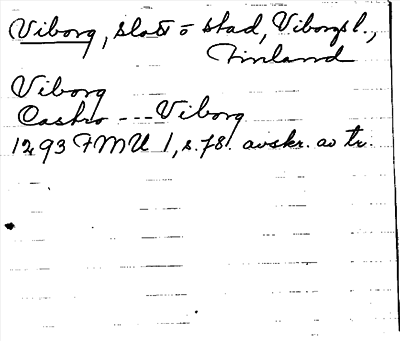 Viborg, slott o stad, Viborgs l.,
Finland
Viborg
Castro --- Viborg
1293 FMU 1, s. 78. avskr. av tr.